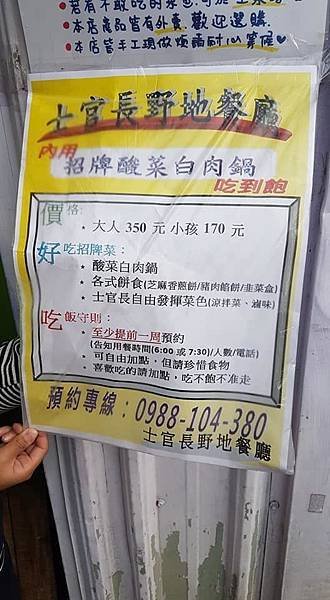 ●若有不敢吃的
●本店產品皆有外賣.歡迎選購.
●本店皆手工現做煩請耐心等候♥
士官長野地餐廳
內用
招牌酸菜白肉鍋
吃到飽
價格:
• 大人 350 元 小孩 170 元
好吃招牌菜:
• 酸菜白肉鍋
• 各式餅食(芝麻香蔥餅/豬肉餡餅/韭菜盒)
• 士官長自由發揮菜色(涼拌菜、滷味)
吃飯守則:
• 至少提前一周預約
(告知用餐時間(6:00 或 7:30)/人數/電話)
• 可自由加點,但請珍惜食物
• 喜歡吃的請加點,吃不飽不准走
預約專線:0988-104-380
士官長野地餐廳